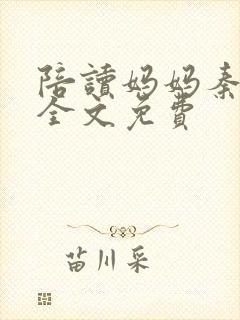 陪讀媽媽秦
全文免費
苗川采